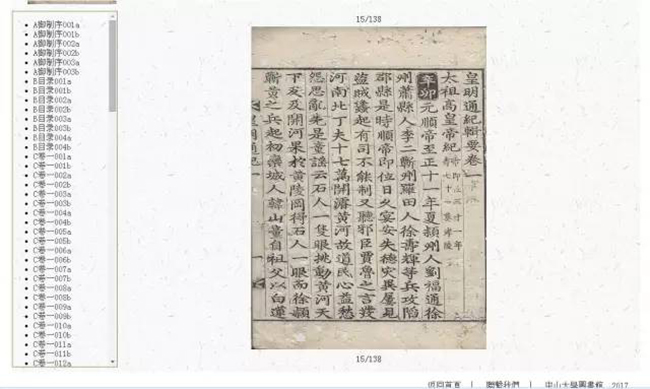 A御制序001a
A御制序001b
A御制序002a
A御制序002b
A御制序003a
A御制序003b
B目录001a
B目录001b
B目录002a
B目录002b
B目录003a
B目录003b
B目录004a
B目录004b
C卷一001a
C卷一001b
C卷一002a
C卷一002b
C卷一003a
C卷一003b
C卷一004a
C卷一004b
C卷一005a
C卷一005b
C卷一006a
C卷一006b
C卷一007a
C卷一007b
C卷一008a
C卷一008b
C卷一009a
C卷一009b
C卷一010a
C卷一010b
C卷一011a
C卷一011b
C卷一012a
15/138
皇明通紀輯要卷一
太祖高皇帝紀
辛卯元順帝至正十一年夏潁州人劉福通徐
州蕭縣人李二蘄州羅田人徐壽輝等兵攻陷
郡縣是時順帝即位日久宴安失德災異屢見
盜賊蜂起有司不能制又聽邪臣賈魯之言發
河南北丁夫十七萬開濬黃河故道民心益愁
怨思亂先是童謠云石人一隻眼挑動黃河天
下反及開河果於黃陵岡得石人一眼而徐潁
蘄黃之兵起初欒城人韓山童自祖父以白蓮
15/138
返回首頁 | 聯繫我們 | 中山大學圖書館 2017